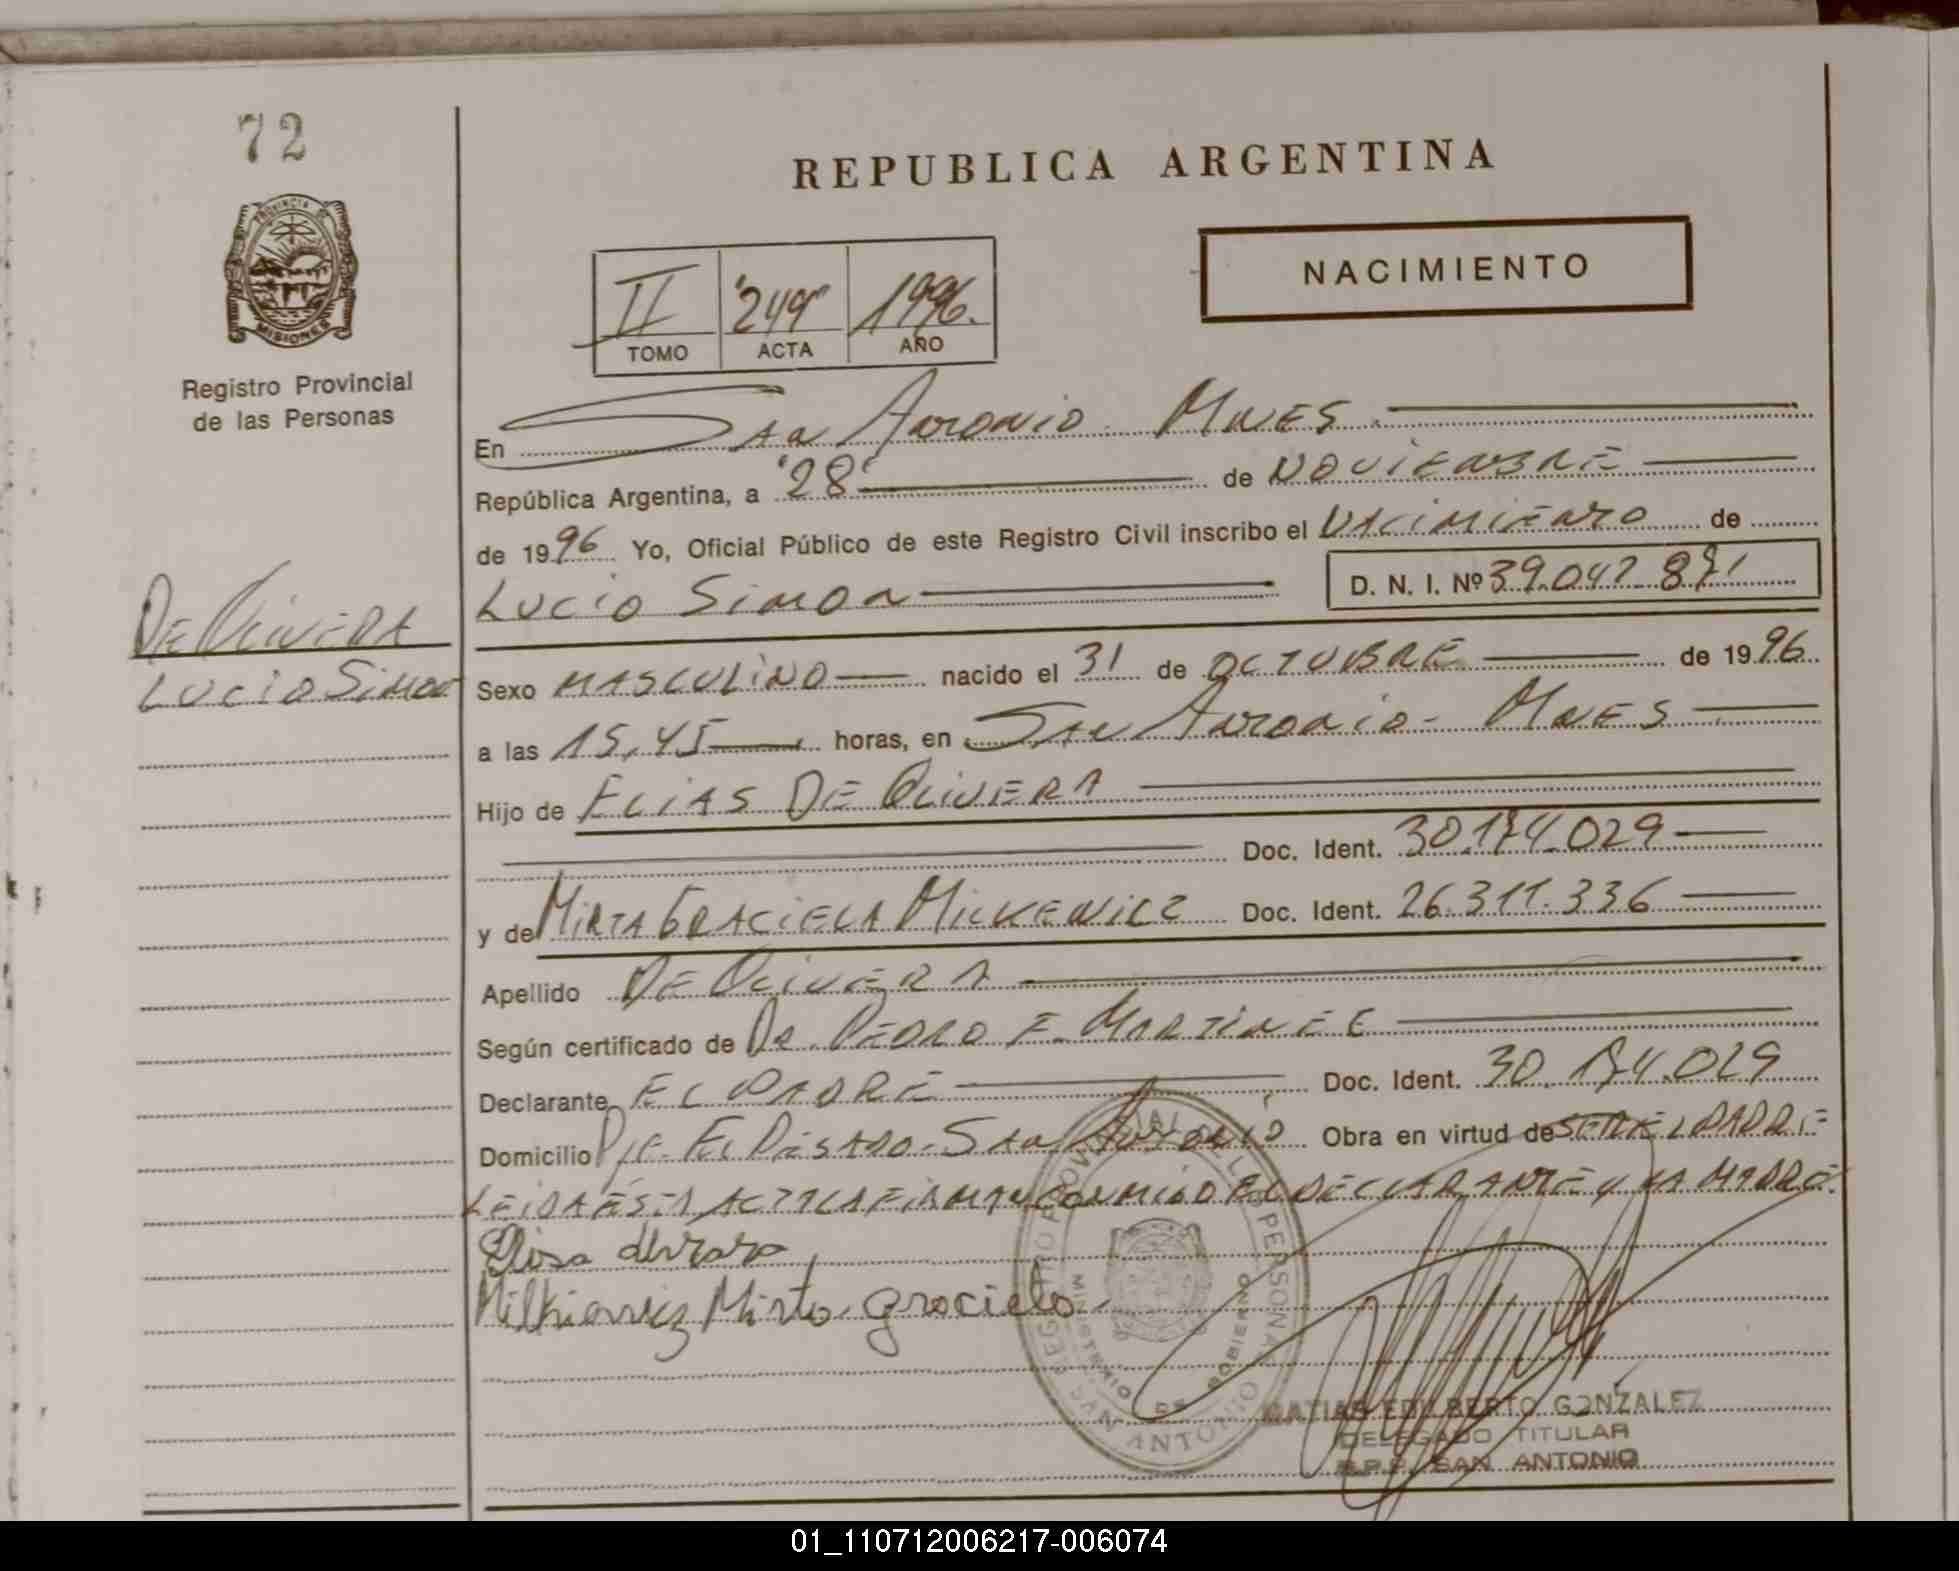 72
REPUBLICA ARGENTINA
NACIMIENTO
PROVINCIA DE
MISIONES
Registro Provincial
de las Personas
II "249" 1996.
TOMO ACTA AÑO
En San Antonio Mnes.
República Argentina, a "28" de Noviembre
de 1996 Yo, Oficial Público de este Registro Civil inscribo el Nacimiento de
Lucio Simon D. N. I. Nº 39.047.871
De Olivera
Lucio Simon
Sexo Masculino nacido el 31 de Octubre de 1996
a las 15,45 horas, en San Antonio - Mnes
Hijo de Elias De Olivera
Doc. Ident. 30.174.029
y de Mirta Graciela Milkewicz Doc. Ident. 26.311.336
Apellido De Olivera
Según certificado de Dr. Pedro E. Martinez
Declarante El Padre Doc. Ident. 30.174.029
Domicilio Pje. El Desado - San Antonio Obra en virtud de ser el Padre
Leida esta acta la firman conmigo el declarante y la madre.
Milkievicz Mirta graciela
REGISTRO PROVINCIAL DE LAS PERSONAS
MINISTERIO DE GOBIERNO
SAN ANTONIO
MATIAS EDILBERTO GONZALEZ
DELEGADO TITULAR
R.P.P. SAN ANTONIO
01_110712006217-006074